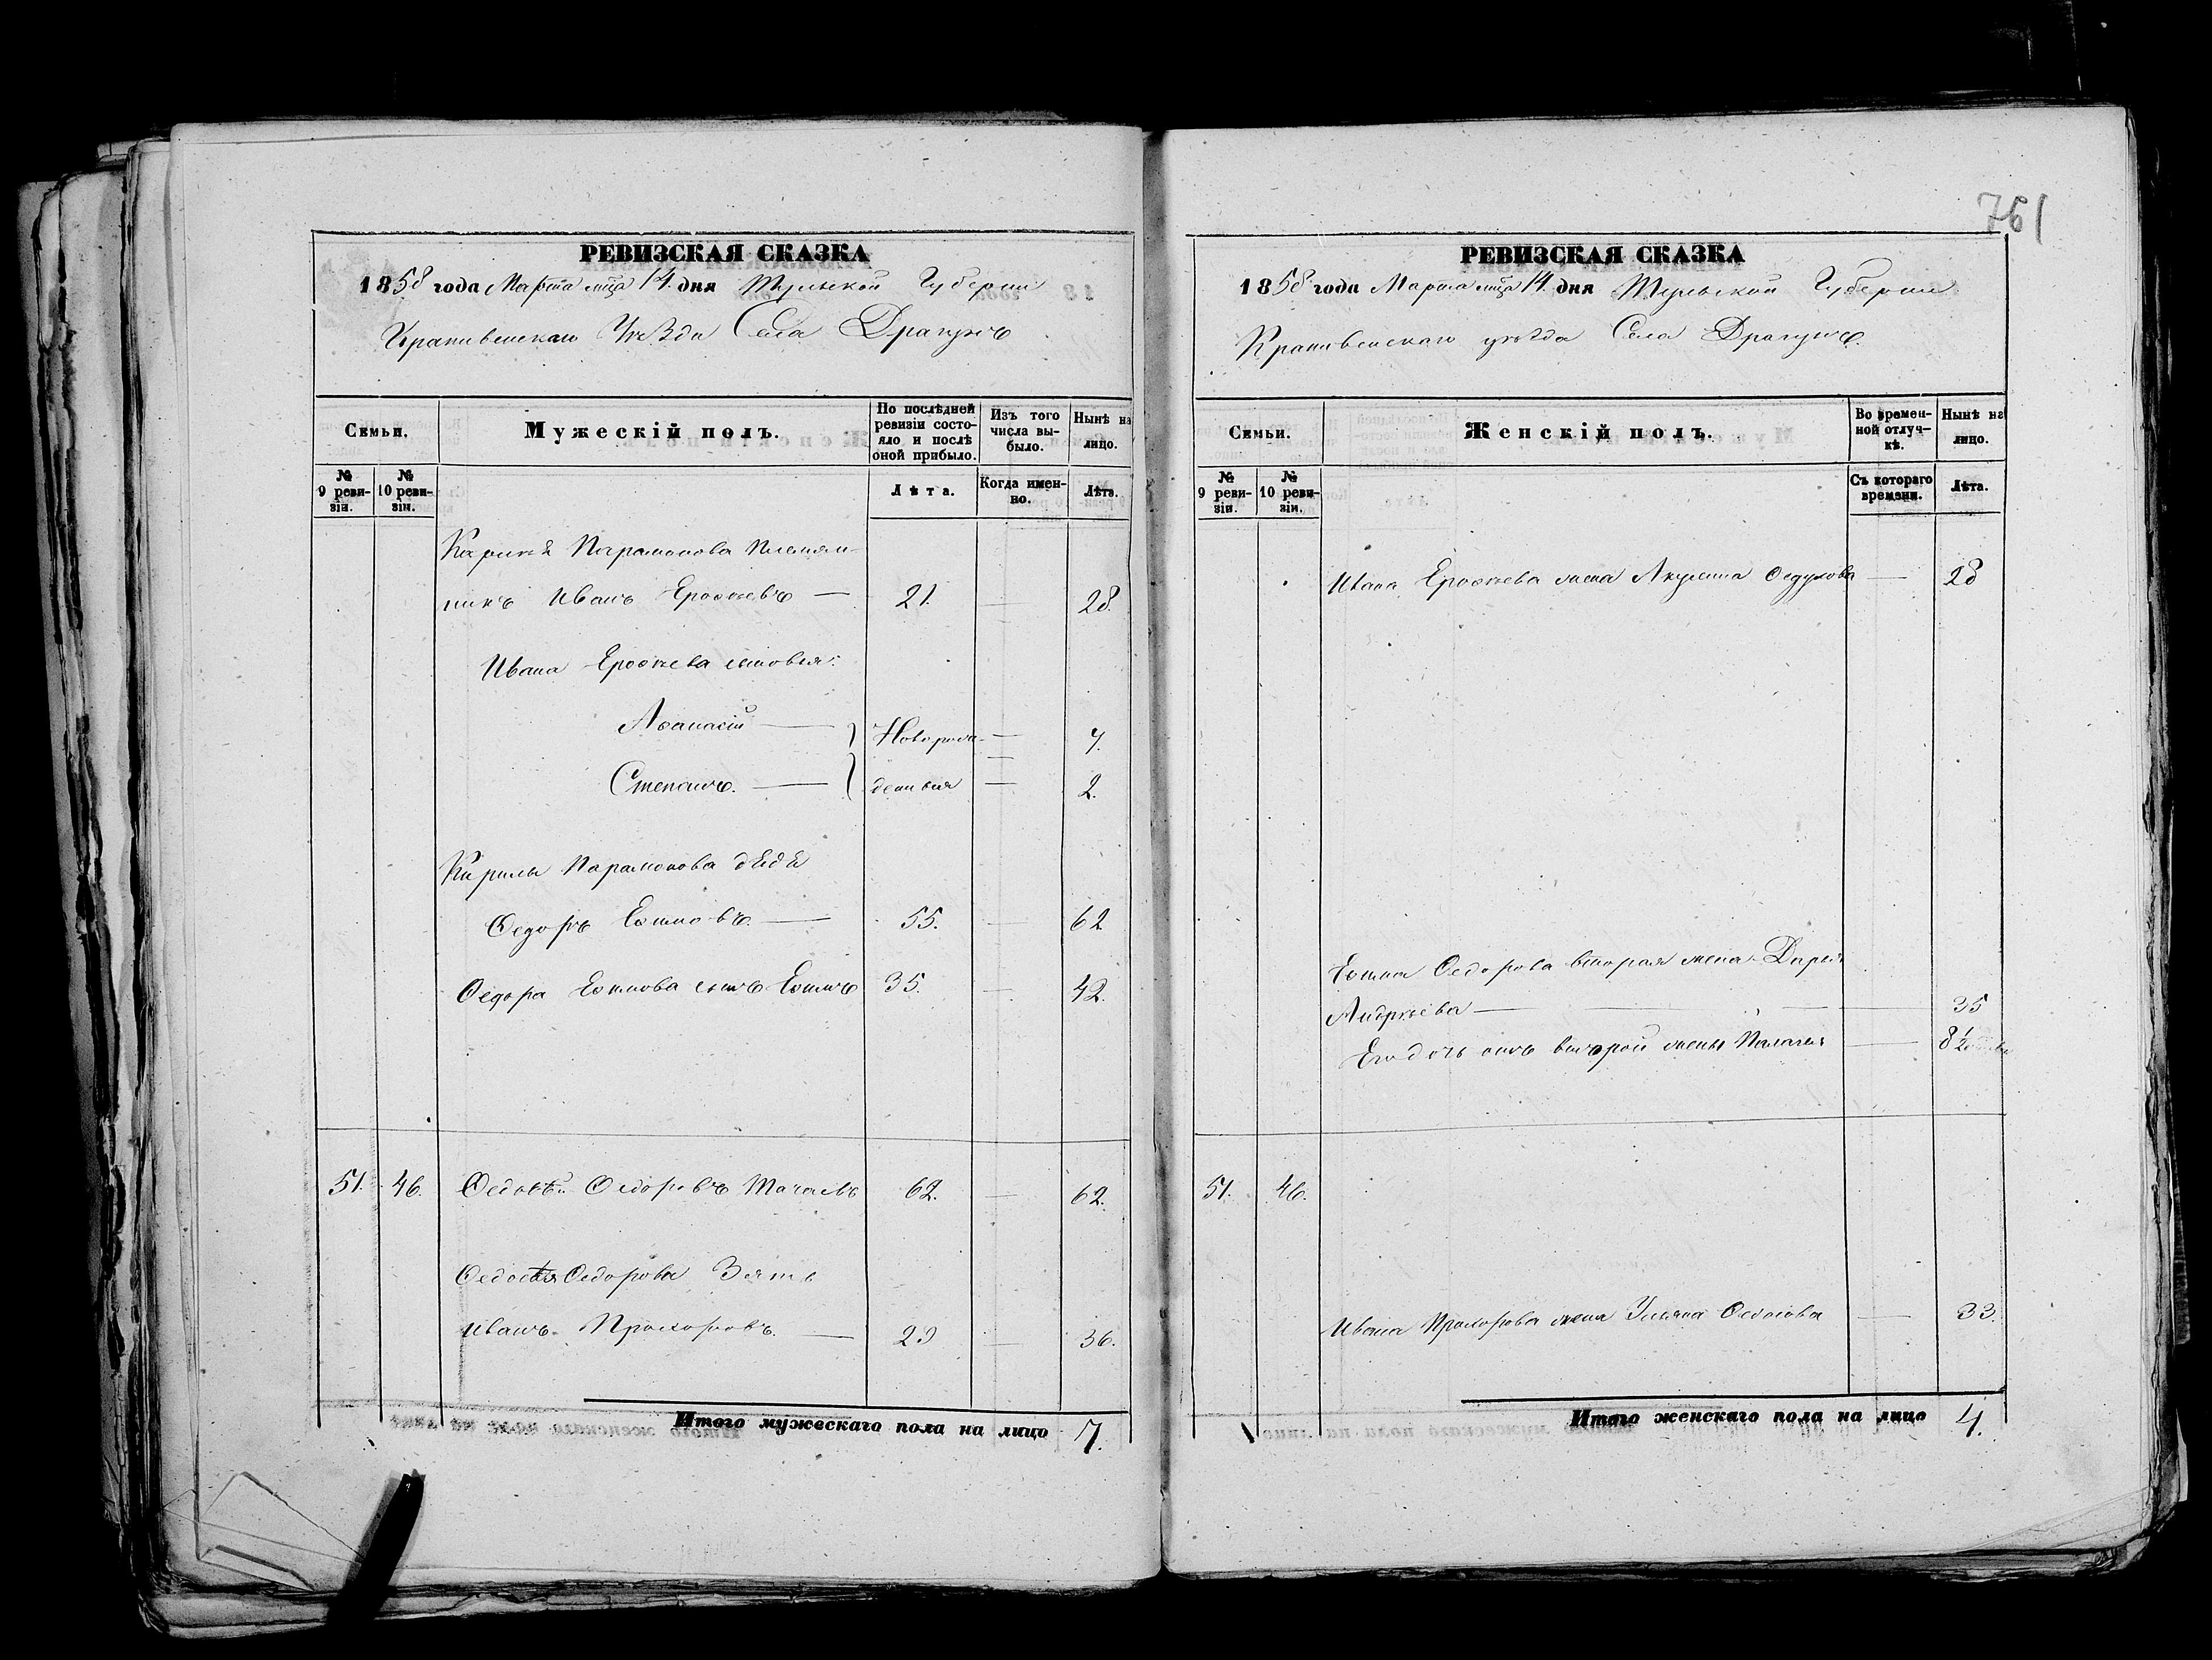 761
РЕВИЗСКАЯ СКАЗКА
1858 года Марта мца 14 дня Тульской Губернии
Крапивенскаго Уѣзда Села Драгунъ
Семьи.
Мужескій полъ.
По послѣдней ревизіи состояло и послѣ оной прибыло.
Изъ того числа выбыло.
Нынѣ на лицо.
№ 9 ревизіи.
№ 10 ревизіи.
Лѣта.
Когда именно.
Лѣта.
Парамонова племян-
никъ Иванъ Ерофѣевъ — 21. — 28.
Ивана Ерофѣева сыновья:
Афанасій — Новорож- — 7.
Степанъ. — денныя — 2.
Кирилы Парамонова дядя
Ѳедоръ Ефимовъ. — 55. — 62
Ѳедора Ефимова сынъ Ефимъ 35. — 42.
51. 46. Ѳедосѣй Ѳедоровъ 62. — 62.
Ѳедосѣя Ѳедорова Зять
Иванъ Прохоровъ. — 29 — 36.
Итого мужескаго пола на лицо 7.
РЕВИЗСКАЯ СКАЗКА
1858 года Марта мца 14 дня Тульской Губернии
Крапивенскаго уѣзда Села Драгунъ.
Семьи.
Женскій полъ.
Во временной отлучкѣ.
Нынѣ на лицо.
№ 9 ревизіи.
№ 10 ревизіи.
Съ котораго времени.
Лѣта.
Ивана Ерофѣева жена Акулина — 28
Ефима Ѳедорова вторая жена Дарья
Андрѣева — 35
Его дочь отъ второй жены Палагея — 8½
51. 46.
Ивана Прохорова жена Ульяна Ѳедосова — 33.
Итого женскаго пола на лицо 4.